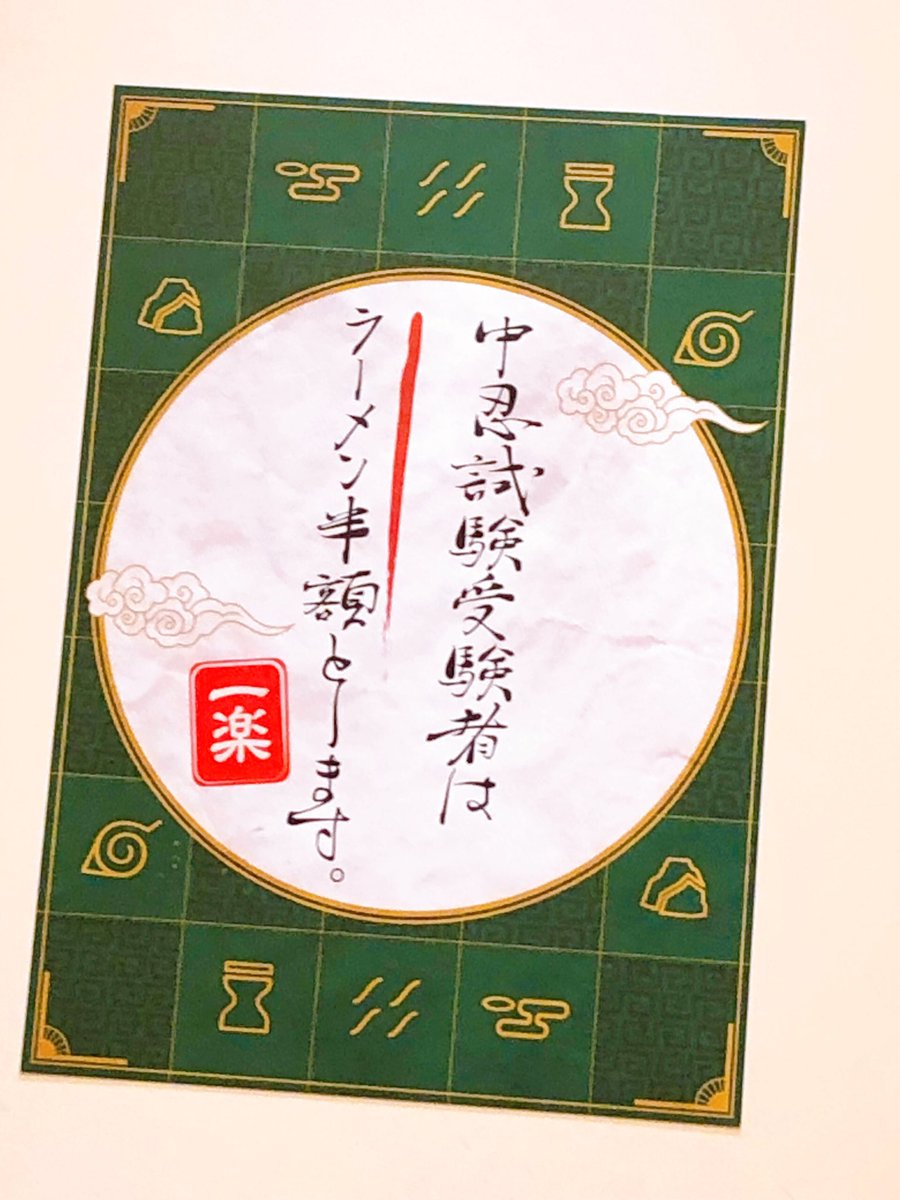 中忍試験受験者は
ラーメン半額とします。
一楽